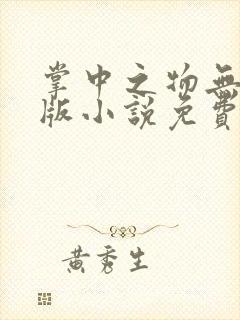 掌中之物無
版小說免費
黃秀生